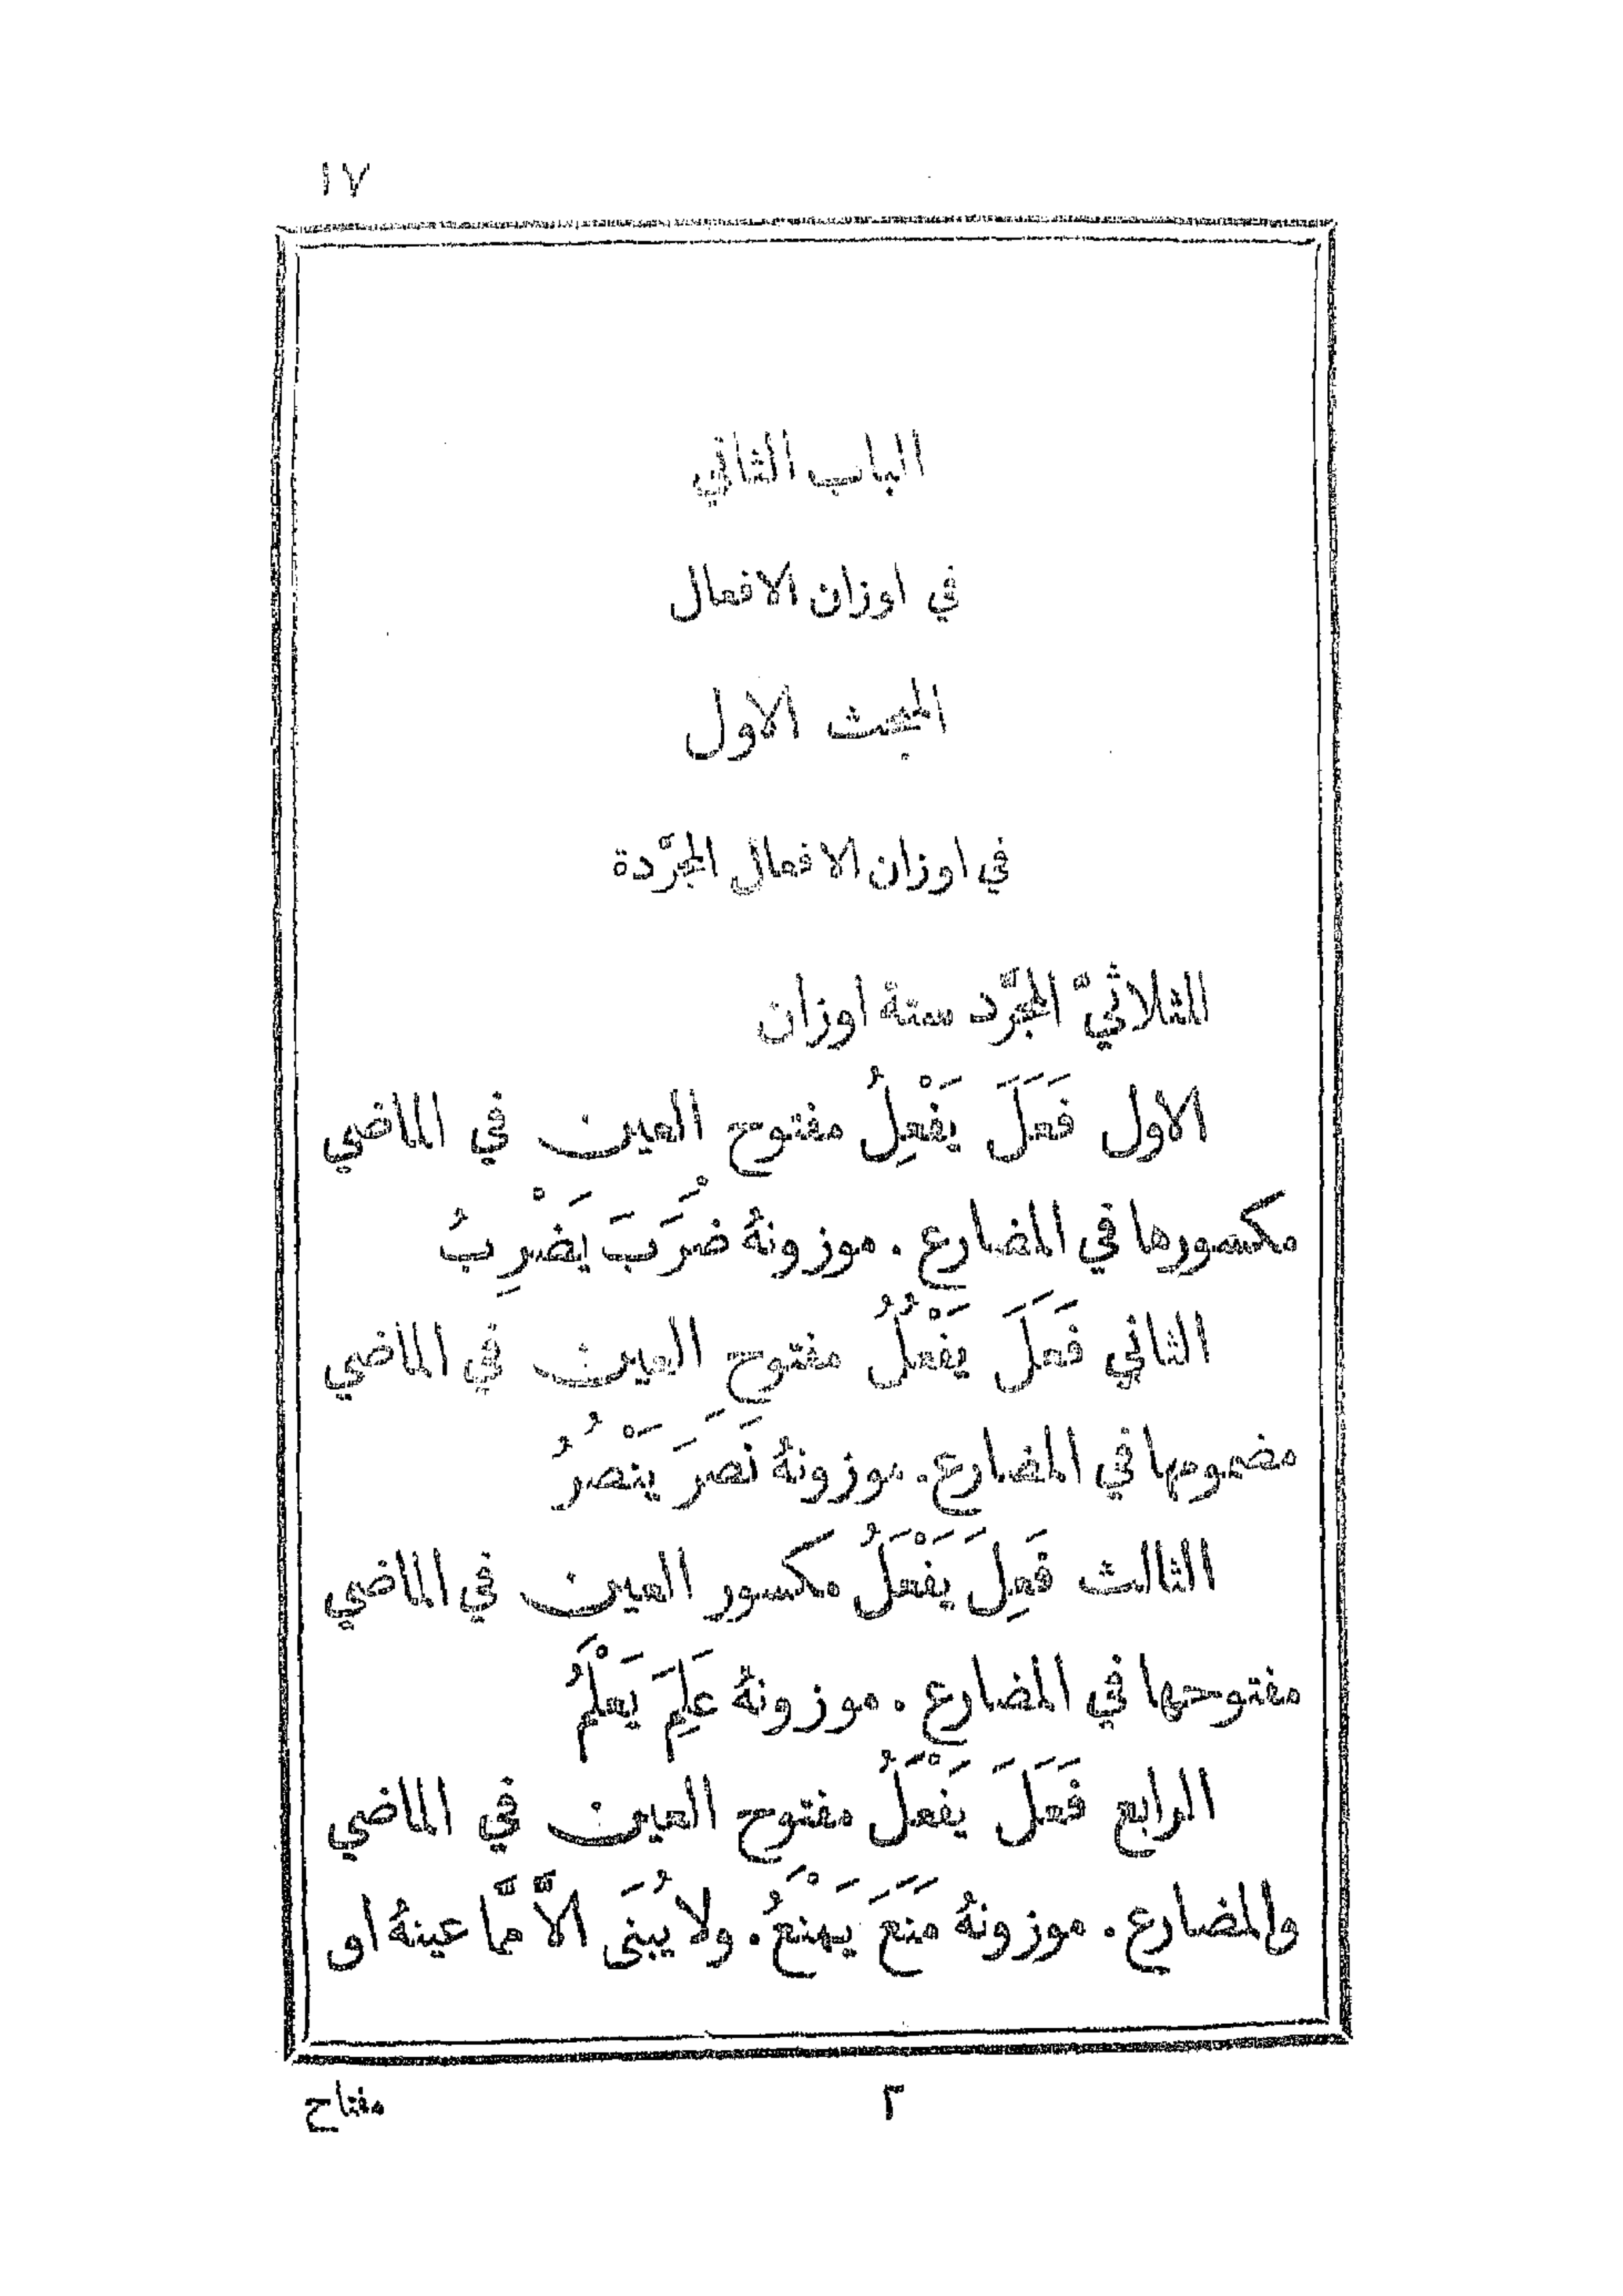 ١٧
الباب الثاني
في اوزان الافعال
المبحث الاول
في اوزان الافعال المجرَّدة
للثلاثيّ المجرَّد ستة اوزان
الاول فَعَلَ يَفْعِلُ مفتوح العين في الماضي
مكسورها في المضارع . موزونهُ ضَرَبَ يَضْرِبُ
الثاني فَعَلَ يَفْعُلُ مفتوح العين في الماضي
مضمومها في المضارع . موزونهُ نَصَرَ يَنْصُرُ
الثالث فَعِلَ يَفْعَلُ مكسور العين في الماضي
مفتوحها في المضارع . موزونهُ عَلِمَ يَعْلَمُ
الرابع فَعَلَ يَفْعَلُ مفتوح العين في الماضي
والمضارع . موزونهُ مَنَعَ يَمْنَعُ . ولا يُبنَى الَّا ممَّا عينهُ او
٣
مفتاح